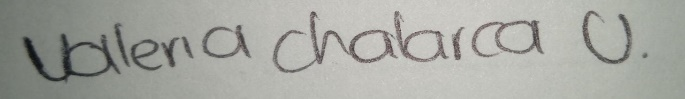 Valeria chalarca U.